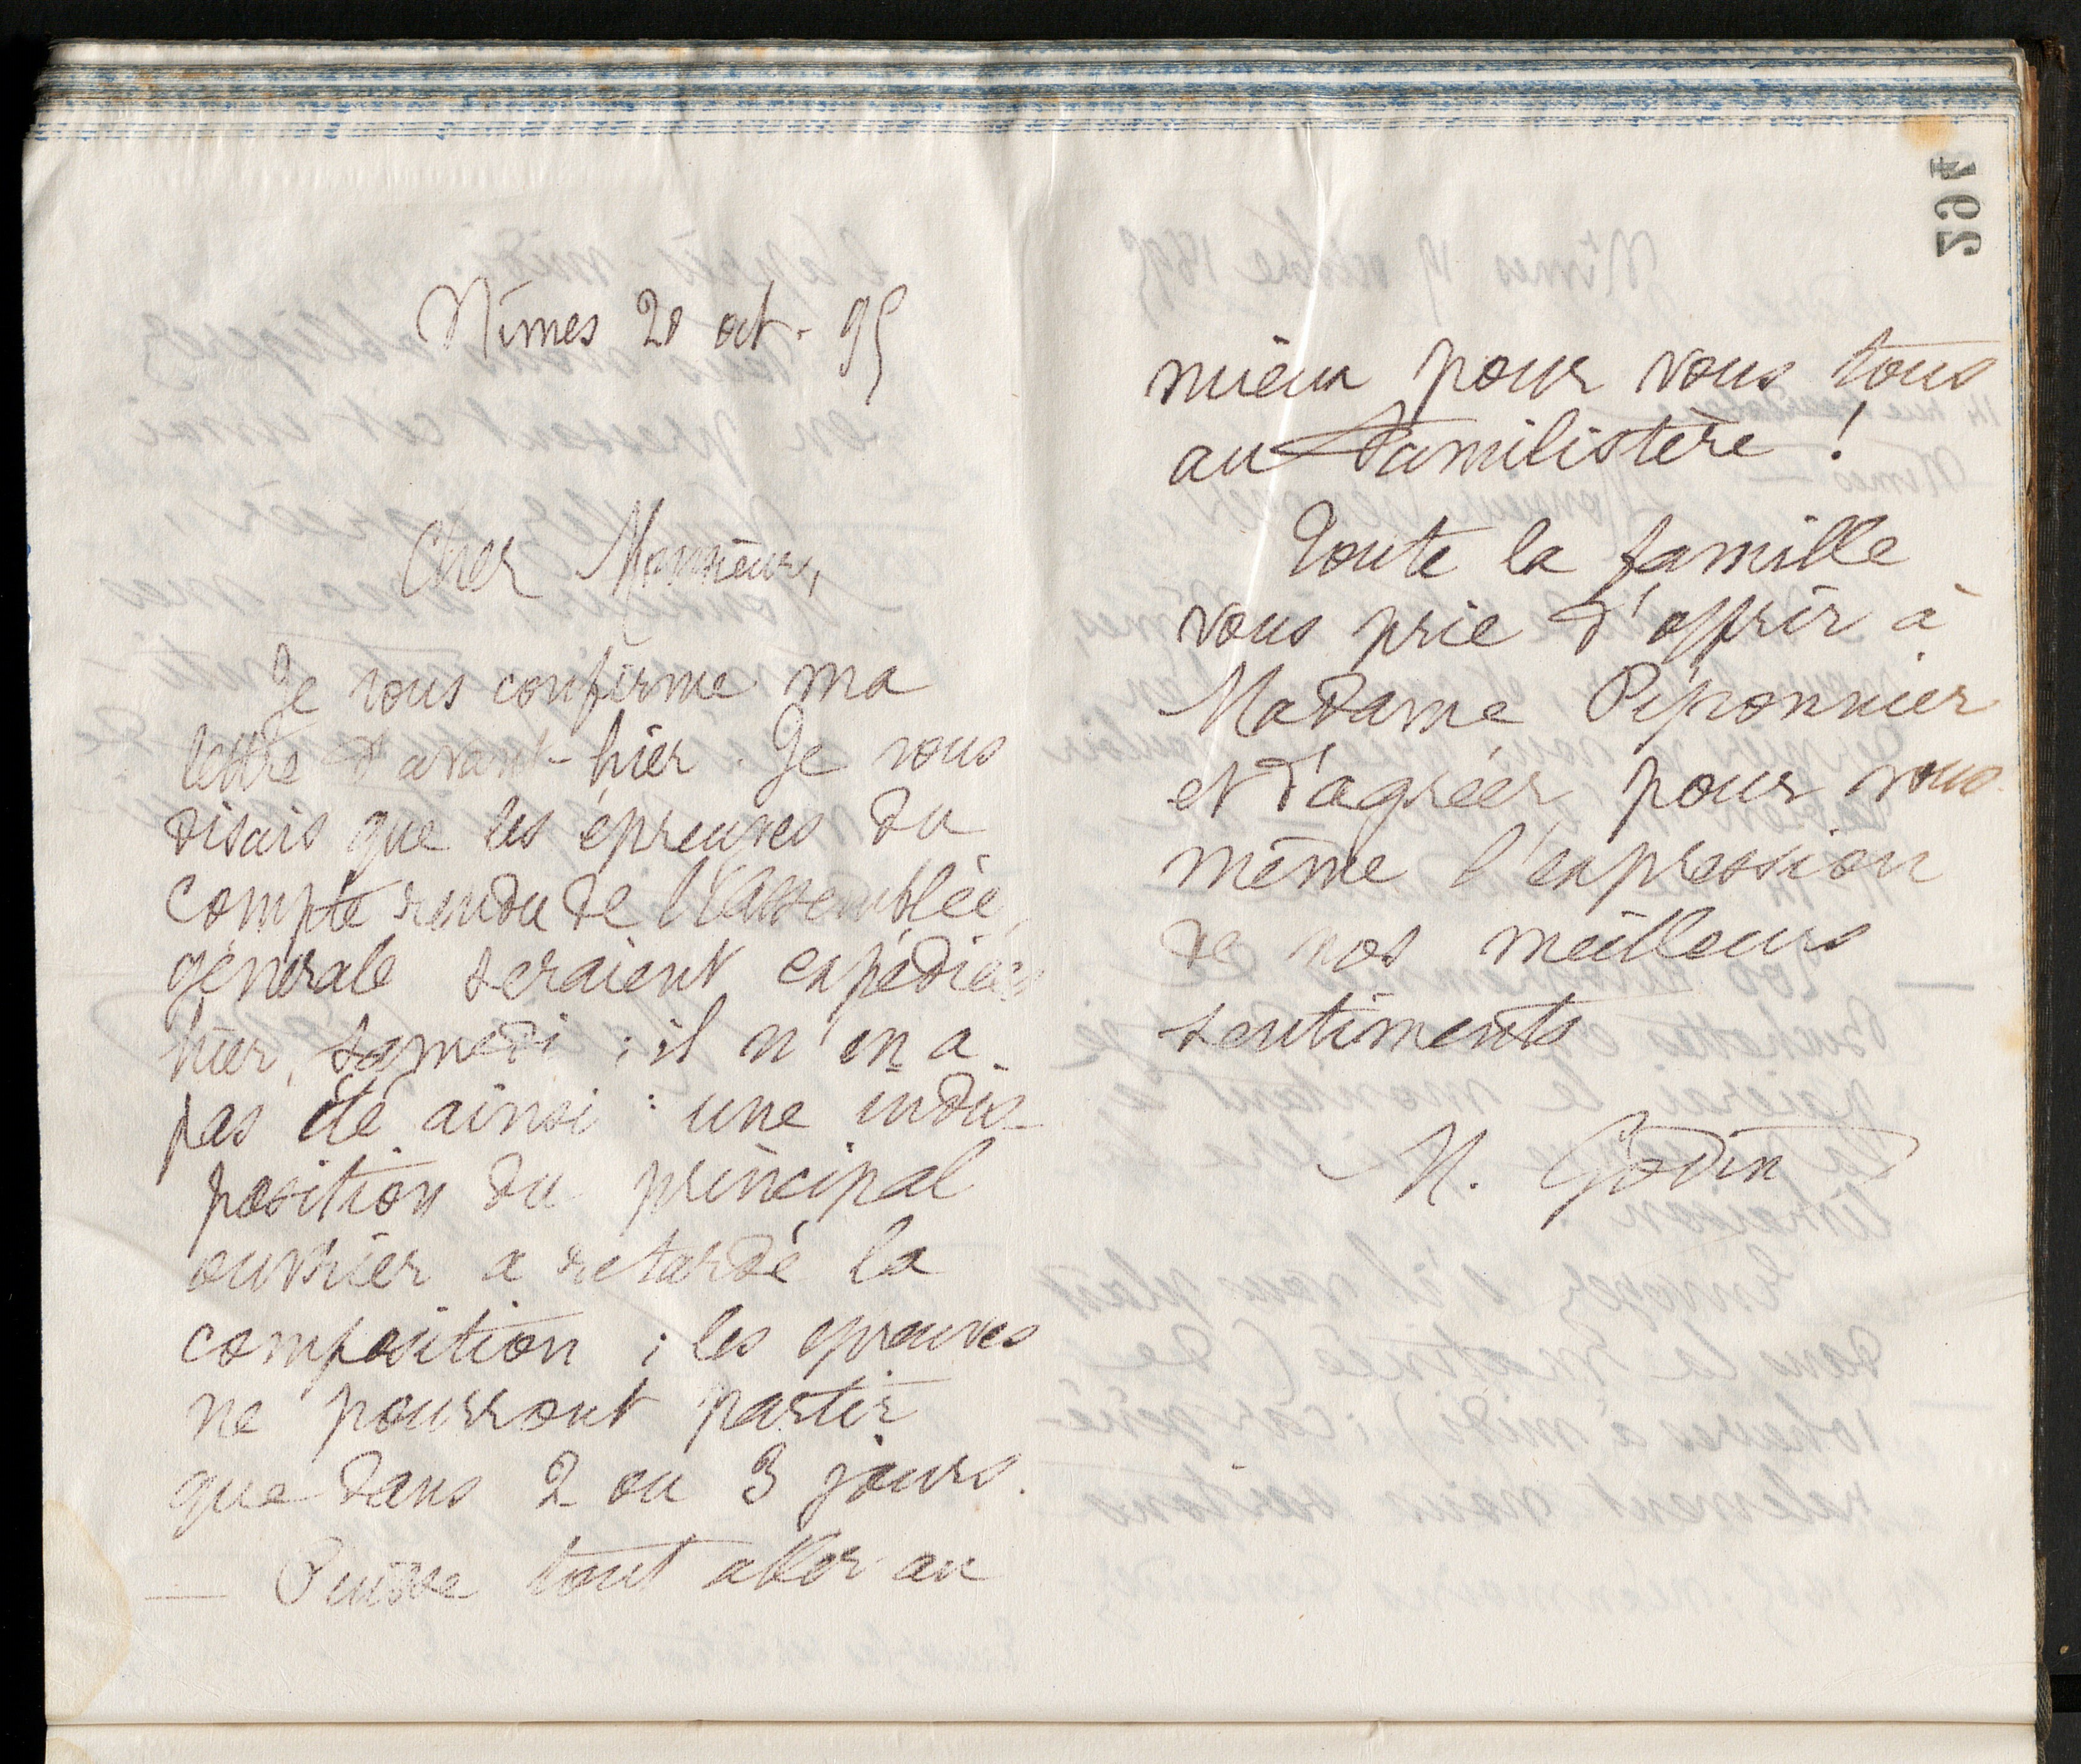 Nîmes 20 oct. 95
Cher Monsieur,
Je vous confirme ma
lettre d'avant-hier. Je vous
disais que les épreuves du
compte rendu de l'assemblée
générale seraient expédiées
hier, samedi ; il n'en a
pas été ainsi : une indis-
position du principal
ouvrier a retardé la
composition ; les épreuves
ne pourront partir
que dans 2 ou 3 jours.
— Puisse tout aller au
mieux pour vous tous
au Familistère !
Toute la famille
vous prie d'offrir à
Madame Piponnier
et d'agréer pour vous
même l'expression
de nos meilleurs
sentiments
M. Godin